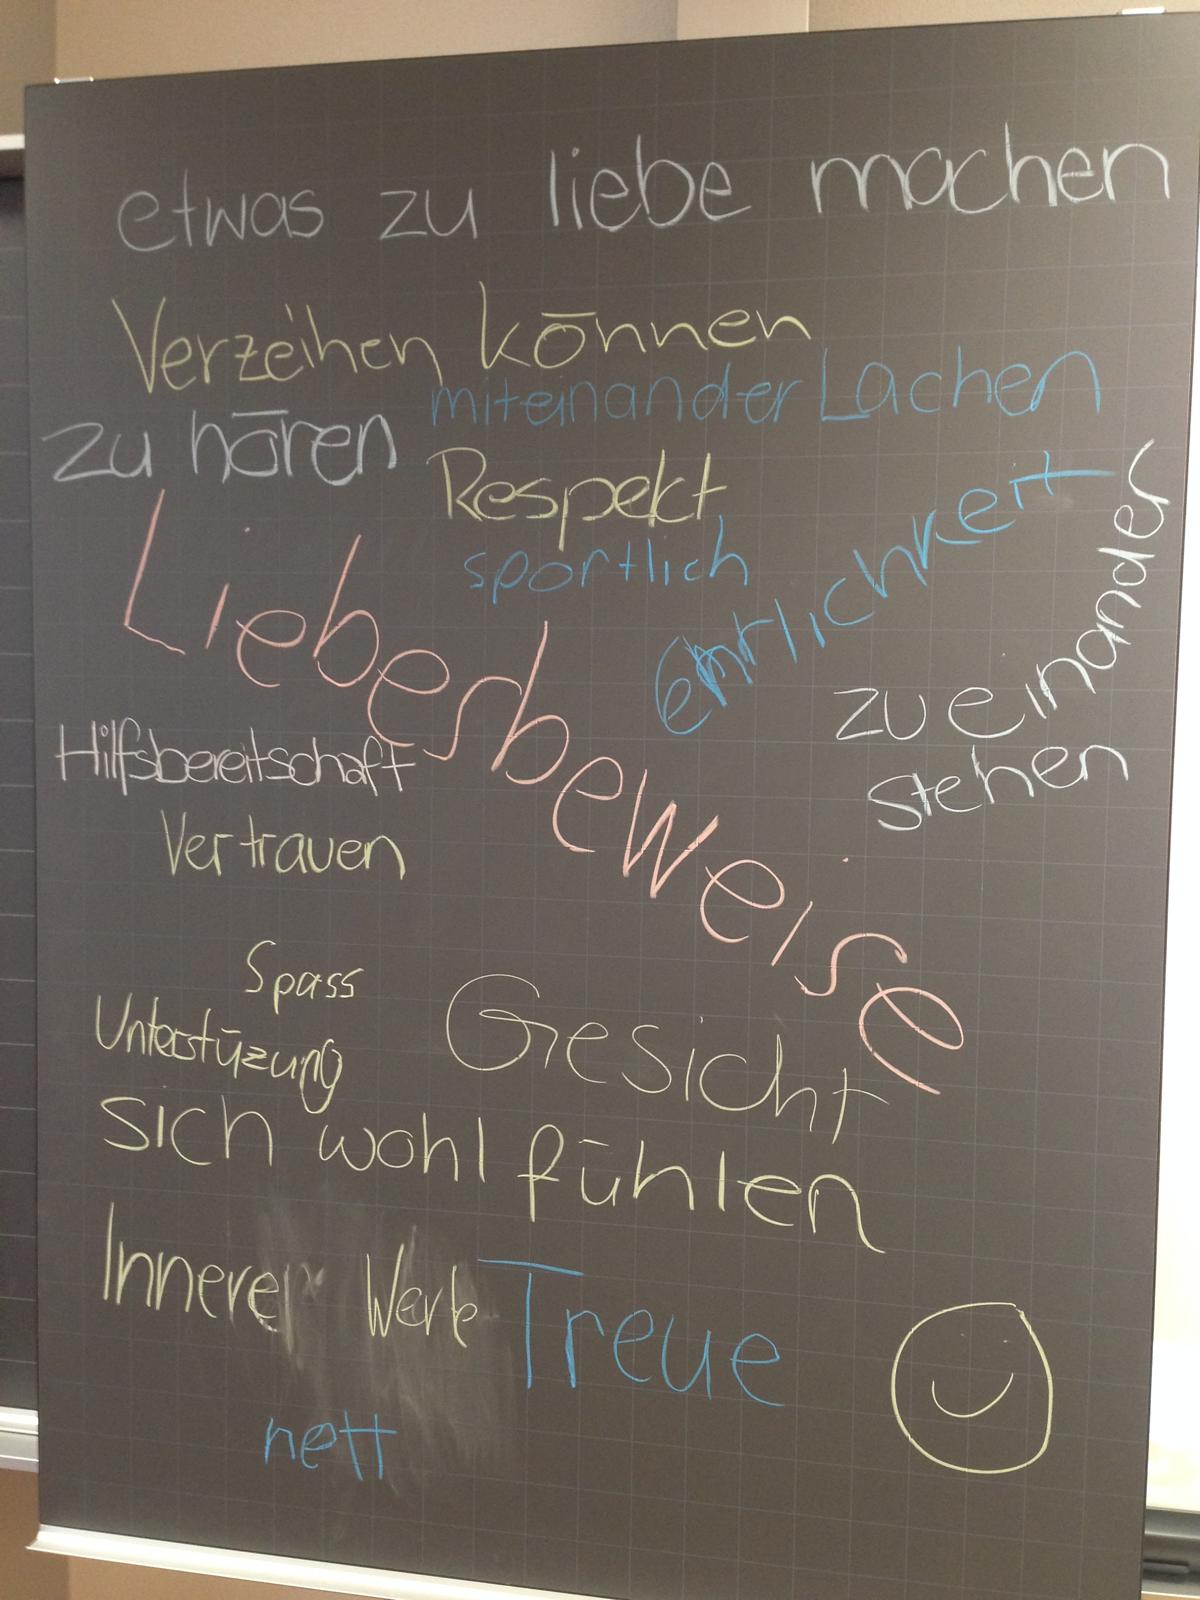 etwas zu liebe machen
Verzeihen können
miteinander Lachen
zu hören
Respekt
sportlich
ehrlichkeit
zueinander
stehen
Liebesbeweise
Hilfsbereitschaft
Vertrauen
Spass
Unterstüzung
Gesicht
sich wohl fühlen
Innere
Treue
nett